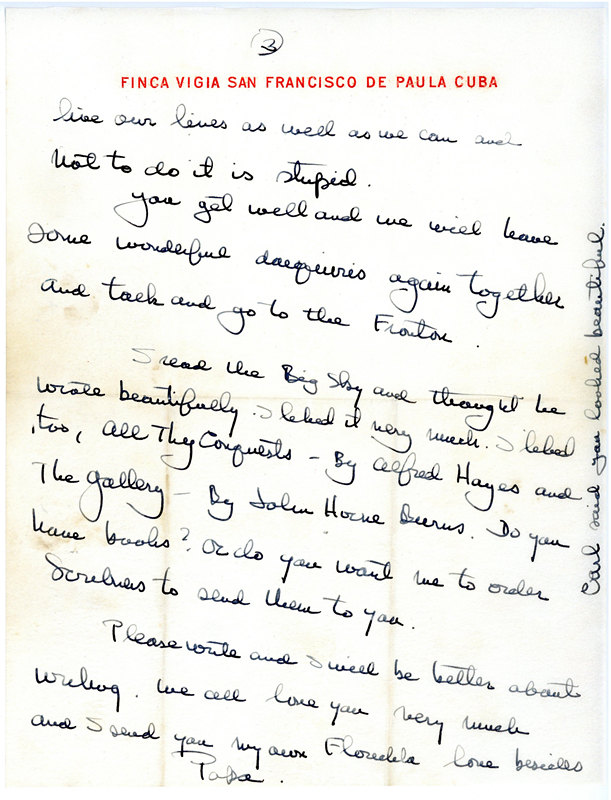 3
FINCA VIGIA SAN FRANCISCO DE PAULA CUBA
live our lives as well as we can and
Not to do it is stupid.
You get well and we will have
Some wonderful daiquiris again together
and talk and go to the Fronton.
I read the Big Sky and thought he
wrote beautifully. I liked it very much. I liked
, too, All Thy Conquests - By Alfred Hayes and
The Gallery - By John Horne Burns. Do you
have books? Or do you want me to order
Scribners to send them to you.
Please write and I will be better about
writing. We all love you very much
and I send you my own love besides
Papa.
Carl said you looked beautiful.